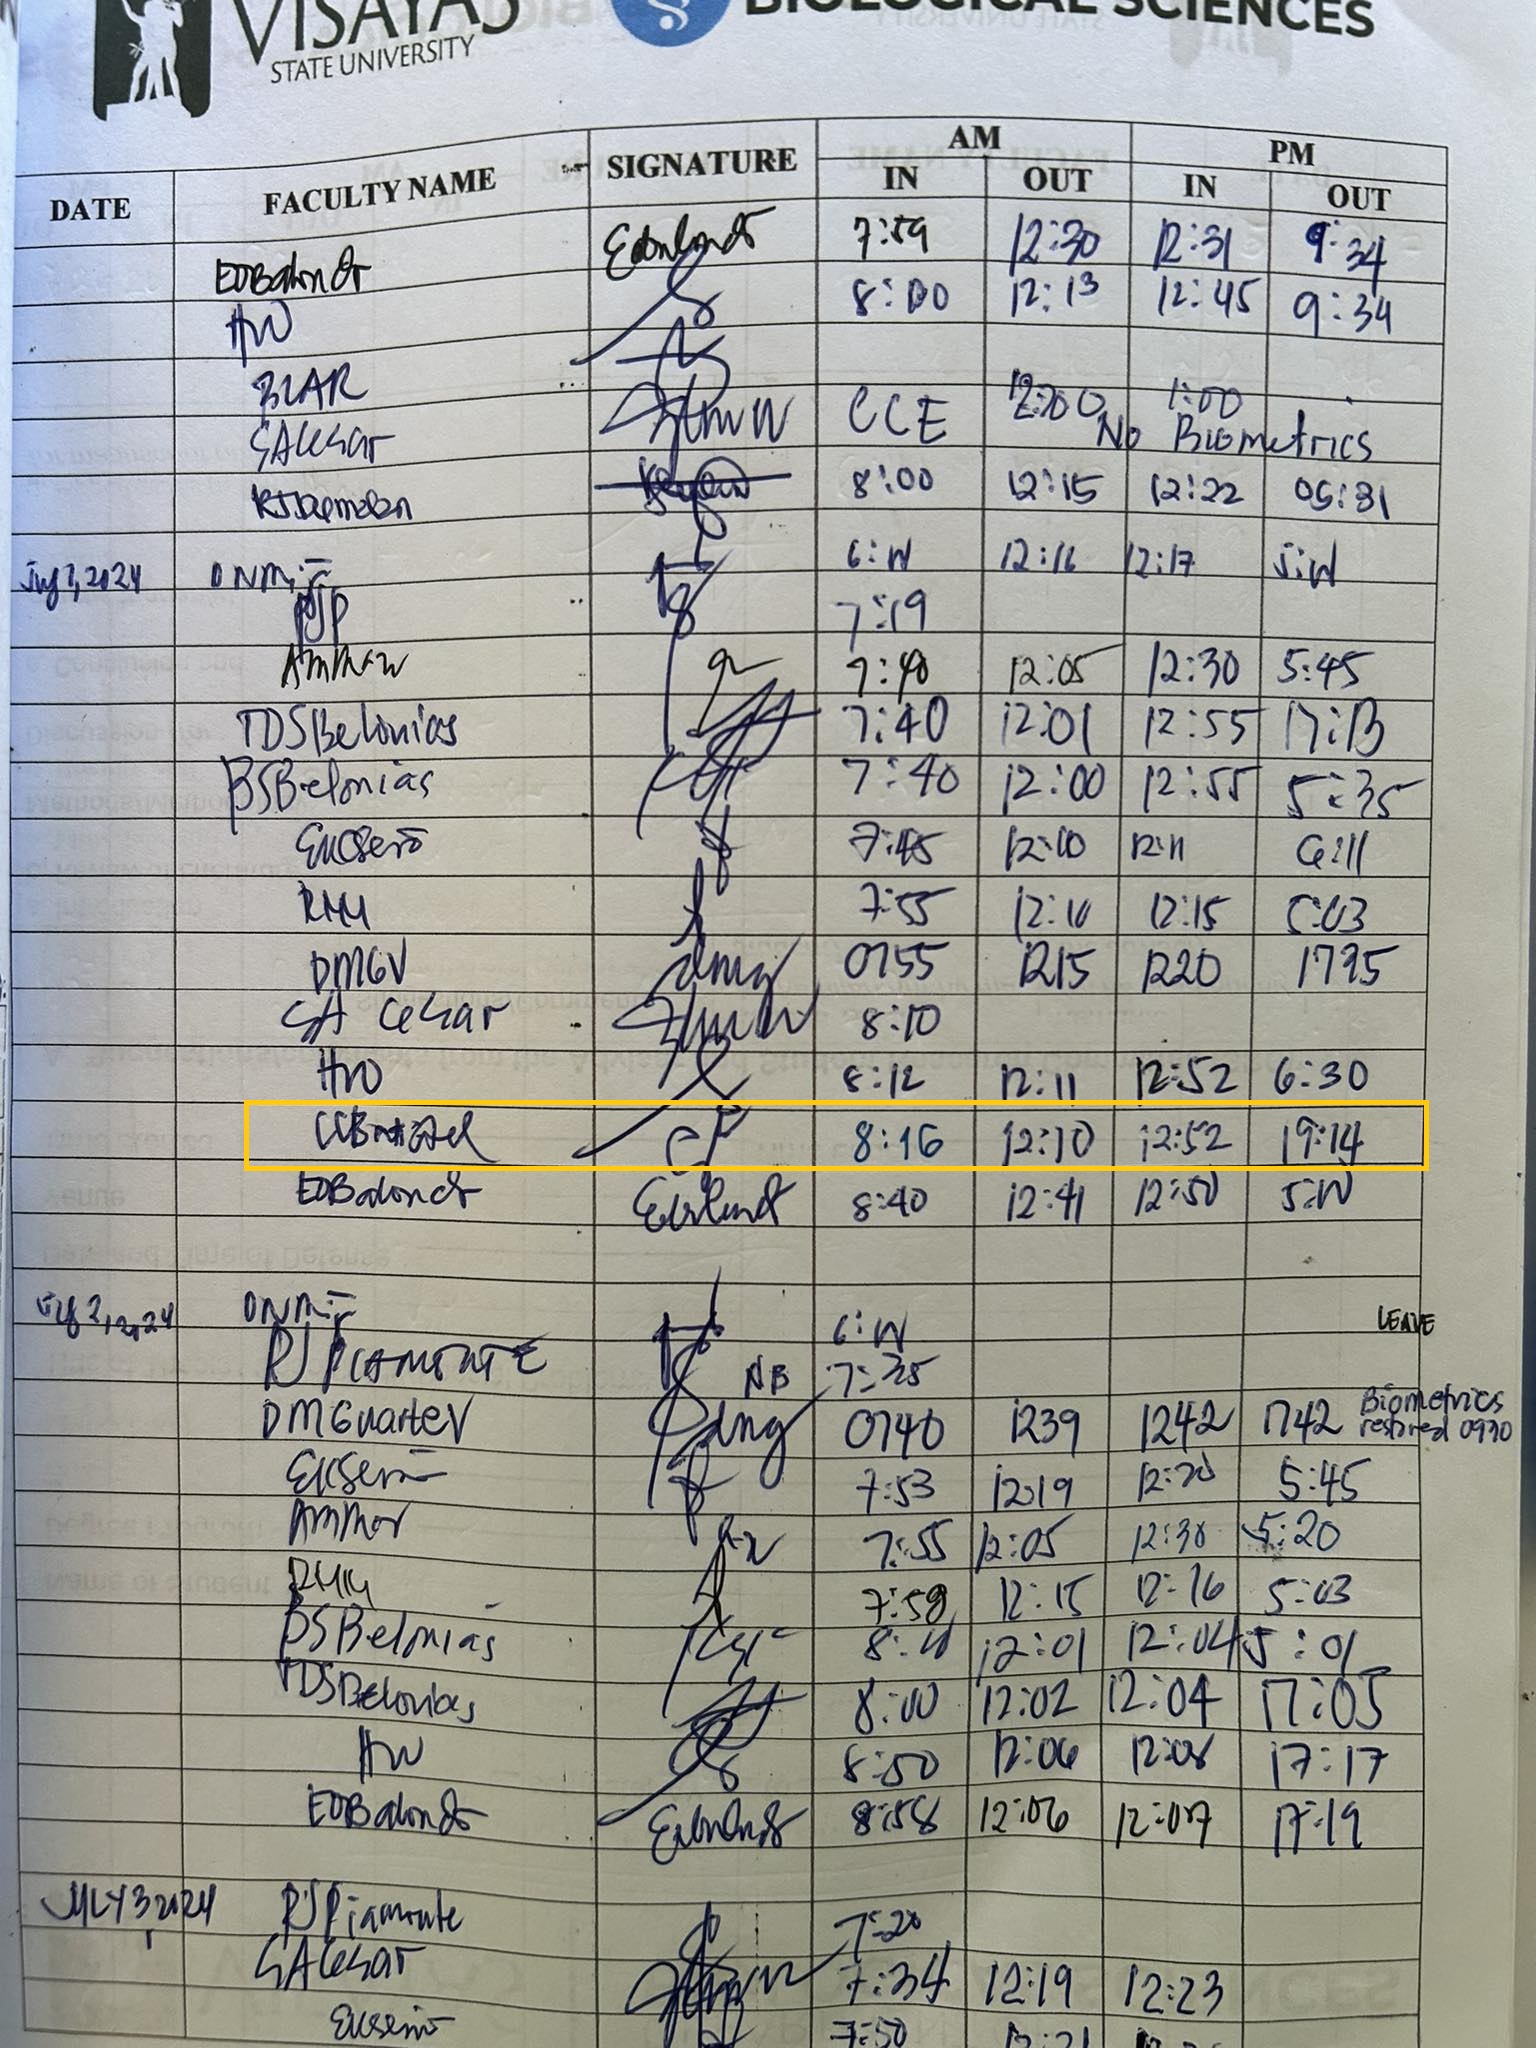 VISAYAS
STATE UNIVERSITY
BIOLOGICAL SCIENCES
DATE FACULTY NAME SIGNATURE AM PM
IN OUT IN OUT
EDBalondo 7:59 12:30 12:31 9:34
HVO 8:00 12:13 12:45 9:34
BLAR
SACesar CCE 12:00 1:00
No Biometrics
8:00 12:15 12:22 05:31
July 1, 2024 DNM 12:16 12:17
PJP 7:19
7:40 12:05 12:30 5:45
TDSBelonias 7:40 12:01 12:55 17:13
BSBelonias 7:40 12:00 12:55 5:35
7:45 12:10 12:11 6:11
7:55 12:10 12:15 5:03
DMGV 0755 1215 1220 1735
SA Cesar 8:10
HVO 8:12 12:11 12:52 6:30
8:16 12:10 12:52 19:14
EDBalondo 8:40 12:41 12:50
July 2, 2024 DNM
LEAVE
RJ PIAMONTE NB 7:35
DMGuarteV 0740 1239 1242 1742 Biometrics
restored 0930
7:53 12:19 12:20 5:45
7:55 12:05 12:30 5:20
7:59 12:15 12:16 5:03
BSBelonias 12:01 12:04 5:01
TDSBelonias 8:00 12:02 12:04 17:05
HVO 8:50 12:06 12:08 17:17
EDBalondo 8:58 12:06 12:07 17:19
JULY 3 2024 RJPiamonte 7:20
SACesar 7:34 12:19 12:23
7:50 12:21